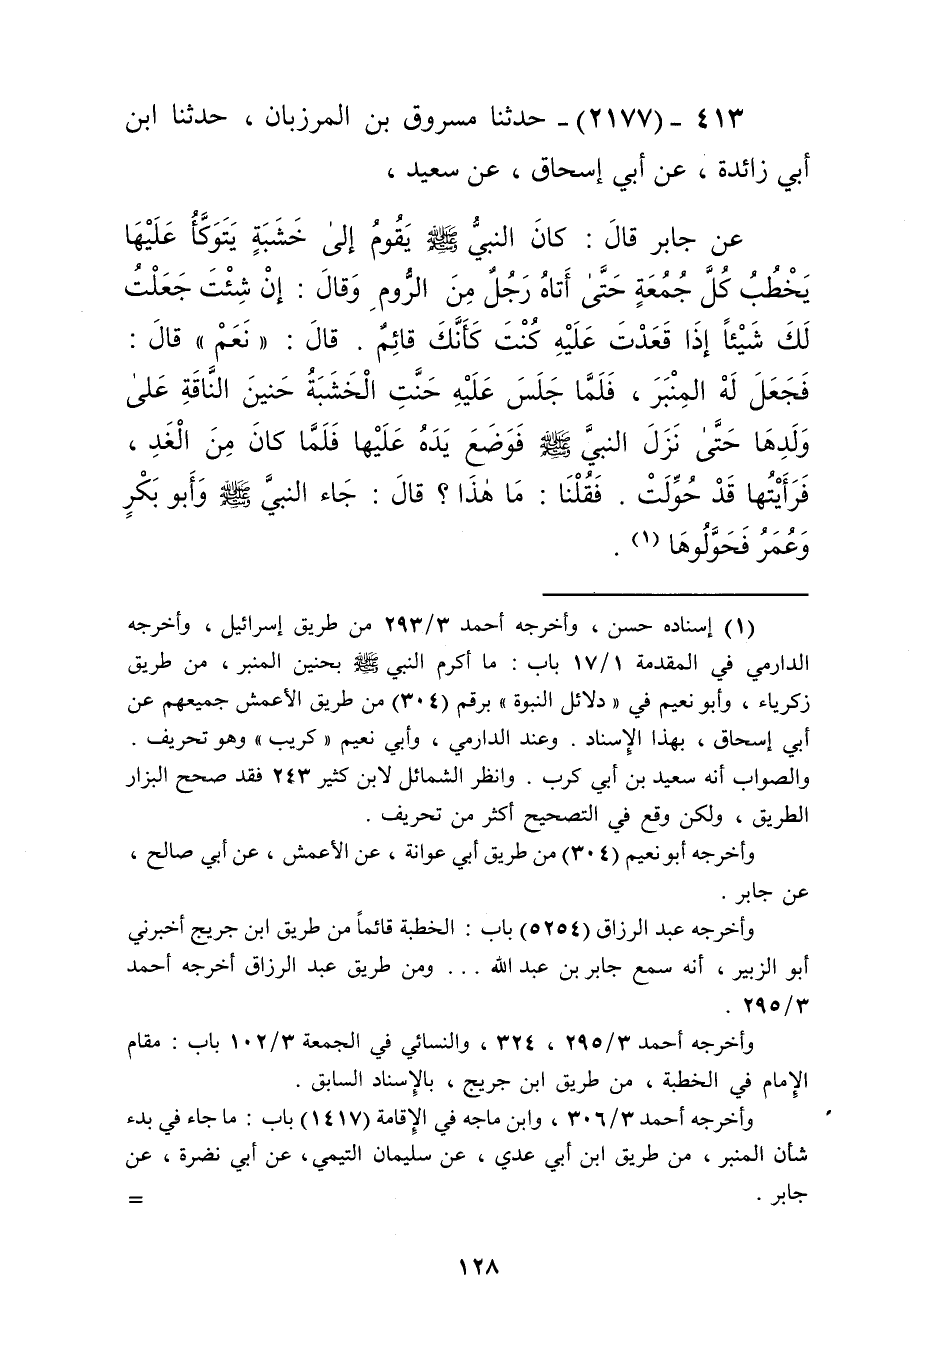 ٤١٣ - (٢١٧٧) - حدثنا مسروق بن المرزبان ، حدثنا ابن
أبي زائدة ، عن أبي إسحاق ، عن سعيد ،
عن جابر قالَ : كانَ النبيُّ ﷺ يَقُومُ إلىٰ خَشَبَةٍ يَتَوَكَّأُ عَلَيْهَا
يَخْطُبُ كُلَّ جُمُعَةٍ حَتَّىٰ أَتَاهُ رَجُلٌ مِنَ الرُّومِ وَقالَ : إنْ شِئْتَ جَعَلْتُ
لَكَ شَيْئاً إذَا قَعَدْتَ عَلَيْهِ كُنْتَ كَأَنَّكَ قائِمٌ . قالَ : « نَعَمْ » قالَ :
فَجَعَلَ لَهُ المِنْبَرَ ، فَلَمَّا جَلَسَ عَلَيْهِ حَنَّتِ الْخَشَبَةُ حَنينَ النَّاقَةِ عَلىٰ
وَلَدِهَا حَتَّىٰ نَزَلَ النبيُّ ﷺ فَوَضَعَ يَدَهُ عَلَيْها فَلَمَّا كانَ مِنَ الْغَدِ ،
فَرَأَيْتُها قَدْ حُوِّلَتْ . فَقُلْنَا : مَا هٰذَا ؟ قالَ : جَاء النبيُّ ﷺ وَأَبو بَكْرٍ
وَعُمَرُ فَحَوَّلُوهَا (١) .
(١) إسناده حسن ، وأخرجه أحمد ٢٩٣/٣ من طريق إسرائيل ، وأخرجه
الدارمي في المقدمة ١٧/١ باب : ما أكرم النبي ﷺ بحنين المنبر ، من طريق
زكرياء ، وأبو نعيم في « دلائل النبوة » برقم (٣٠٤) من طريق الأعمش جميعهم عن
أبي إسحاق ، بهذا الإسناد . وعند الدارمي ، وأبي نعيم « كريب » وهو تحريف .
والصواب أنه سعيد بن أبي كرب . وانظر الشمائل لابن كثير ٢٤٣ فقد صحح البزار
الطريق ، ولكن وقع في التصحيح أكثر من تحريف .
وأخرجه أبو نعيم (٣٠٤) من طريق أبي عوانة ، عن الأعمش ، عن أبي صالح ،
عن جابر .
وأخرجه عبد الرزاق (٥٢٥٤) باب : الخطبة قائماً من طريق ابن جريج أخبرني
أبو الزبير ، أنه سمع جابر بن عبد الله ... ومن طريق عبد الرزاق أخرجه أحمد
٢٩٥/٣ .
وأخرجه أحمد ٢٩٥/٣ ، ٣٢٤ ، والنسائي في الجمعة ١٠٢/٣ باب : مقام
الإمام في الخطبة ، من طريق ابن جريج ، بالإسناد السابق .
وأخرجه أحمد ٣٠٦/٣ ، وابن ماجه في الإقامة (١٤١٧) باب : ما جاء في بدء
شأن المنبر ، من طريق ابن أبي عدي ، عن سليمان التيمي، عن أبي نضرة ، عن
جابر . =
١٢٨